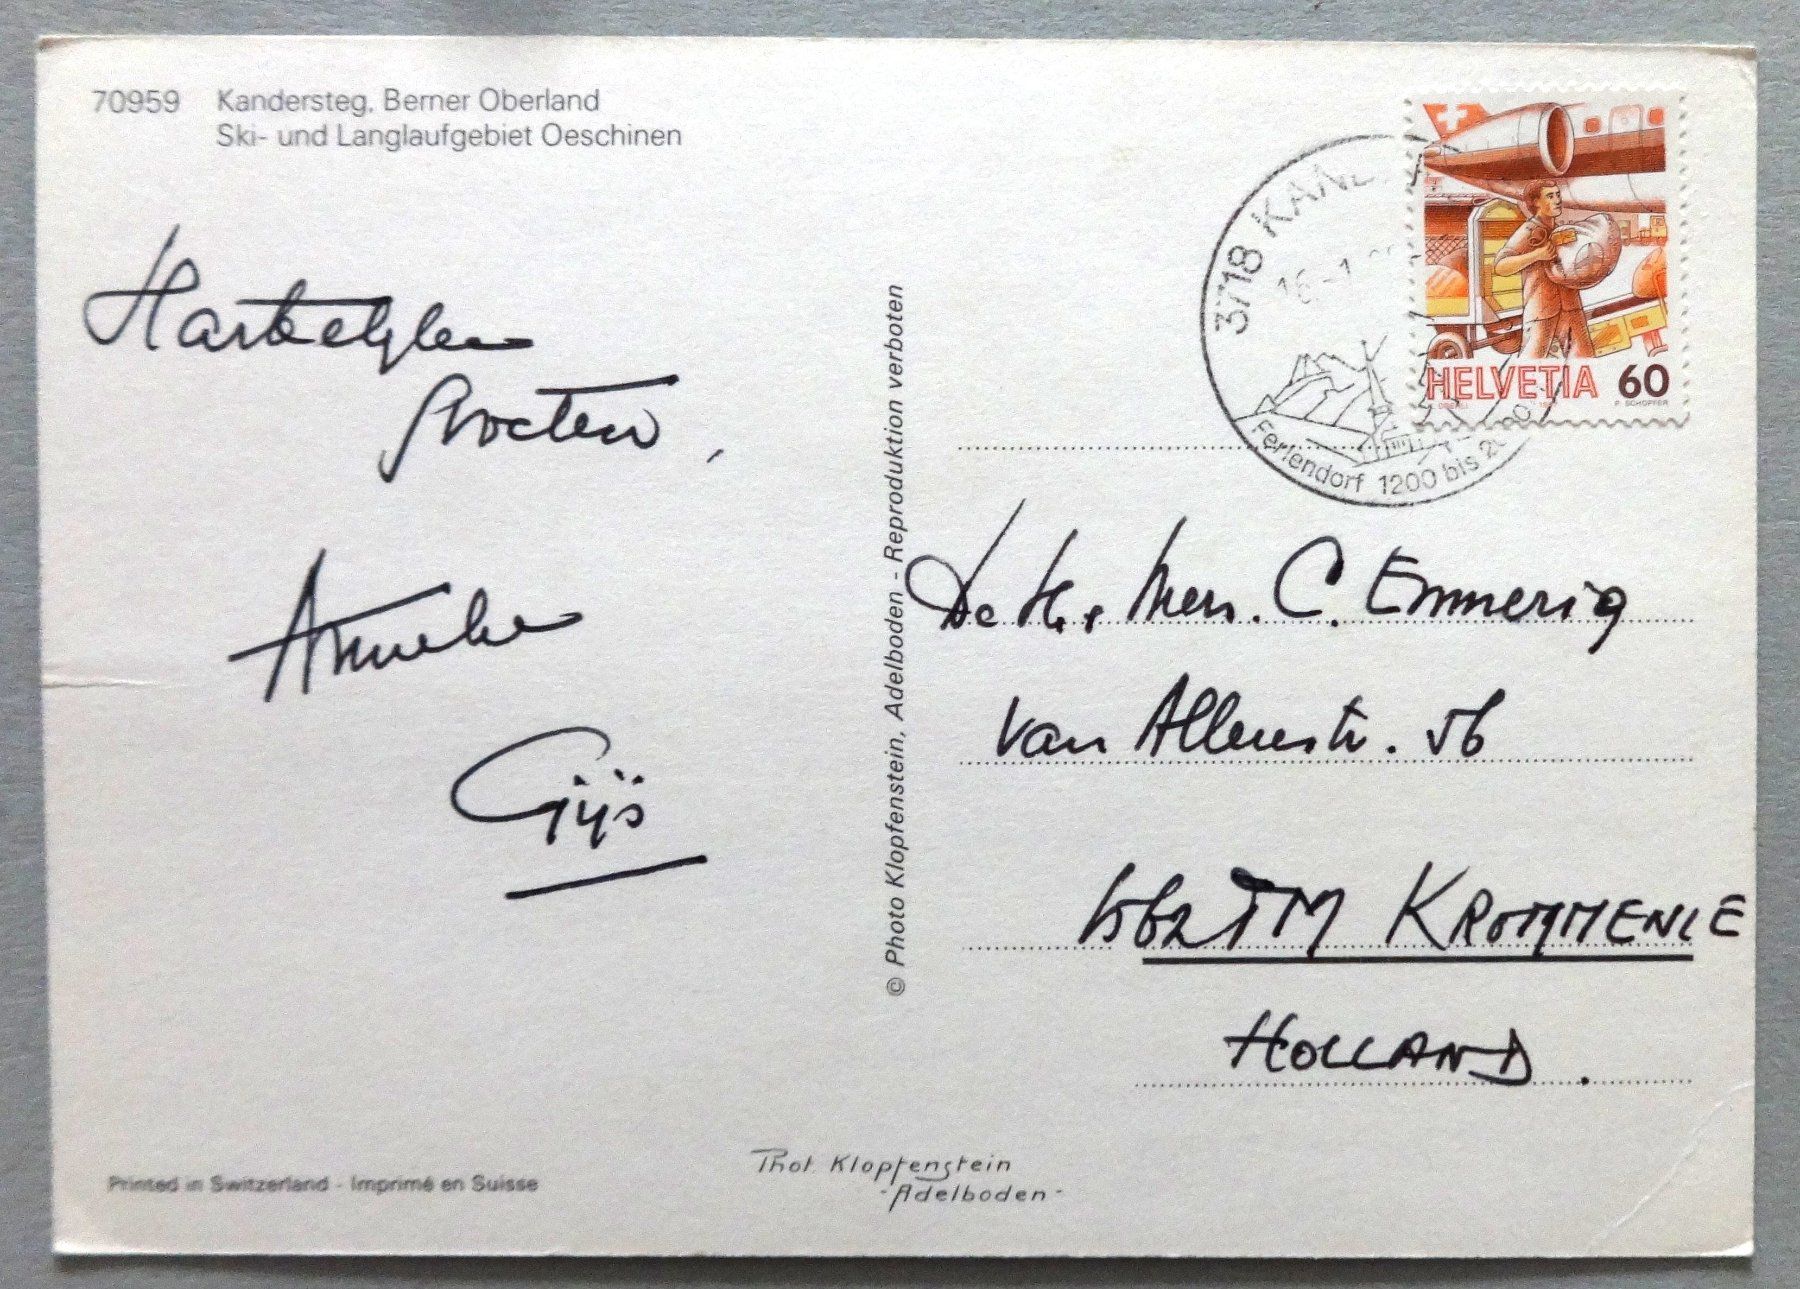 70959 Kandersteg, Berner Oberland
Ski- und Langlaufgebiet Oeschinen
Hartelyke
groeten,
Anneke
Gijs
Printed in Switzerland - Imprimé en Suisse
© Photo Klopfenstein, Adelboden - Reproduktion verboten
Phot. Klopfenstein
- Adelboden -
3718 KAND
16.-1.
Feriendorf 1200 bis 20
HELVETIA 60
P. SCHOPFER
De H. Mevr. C. Emmerig
Van Allenstr. 56
1562 TM KROMMENIE
HOLLAND.